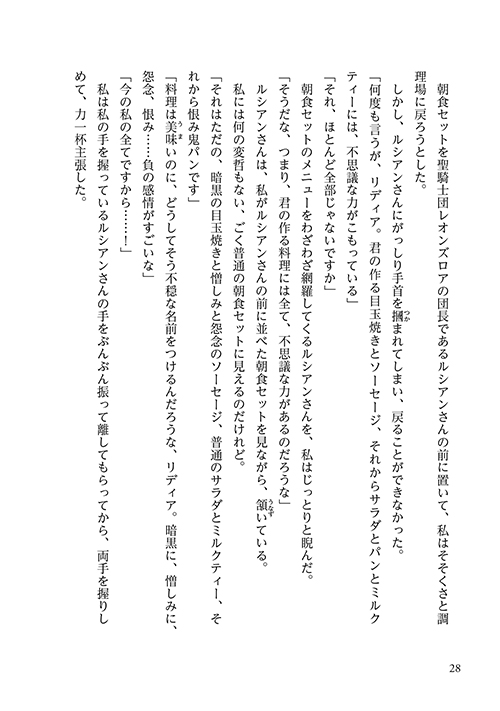 朝食セットを聖騎士団レオンズロアの団長であるルシアンさんの前に置いて、私はそそくさと調
理場に戻ろうとした。
しかし、ルシアンさんにがっしり手首を摑まれてしまい、戻ることができなかった。
「何度も言うが、リディア。君の作る目玉焼きとソーセージ、それからサラダとパンとミルク
ティーには、不思議な力がこもっている」
「それ、ほとんど全部じゃないですか」
朝食セットのメニューをわざわざ網羅してくるルシアンさんを、私はじっとりと睨んだ。
「そうだな、つまり、君の作る料理には全て、不思議な力があるのだろうな」
ルシアンさんは、私がルシアンさんの前に並べた朝食セットを見ながら、頷いている。
私には何の変哲もない、ごく普通の朝食セットに見えるのだけれど。
「それはただの、暗黒の目玉焼きと憎しみと怨念のソーセージ、普通のサラダとミルクティー、そ
れから恨み鬼パンです」
「料理は美味いのに、どうしてそう不穏な名前をつけるんだろうな、リディア。暗黒に、憎しみに、
怨念、恨み……負の感情がすごいな」
「今の私の全てですから……！」
私は私の手を握っているルシアンさんの手をぶんぶん振って離してもらってから、両手を握りし
めて、力一杯主張した。
28